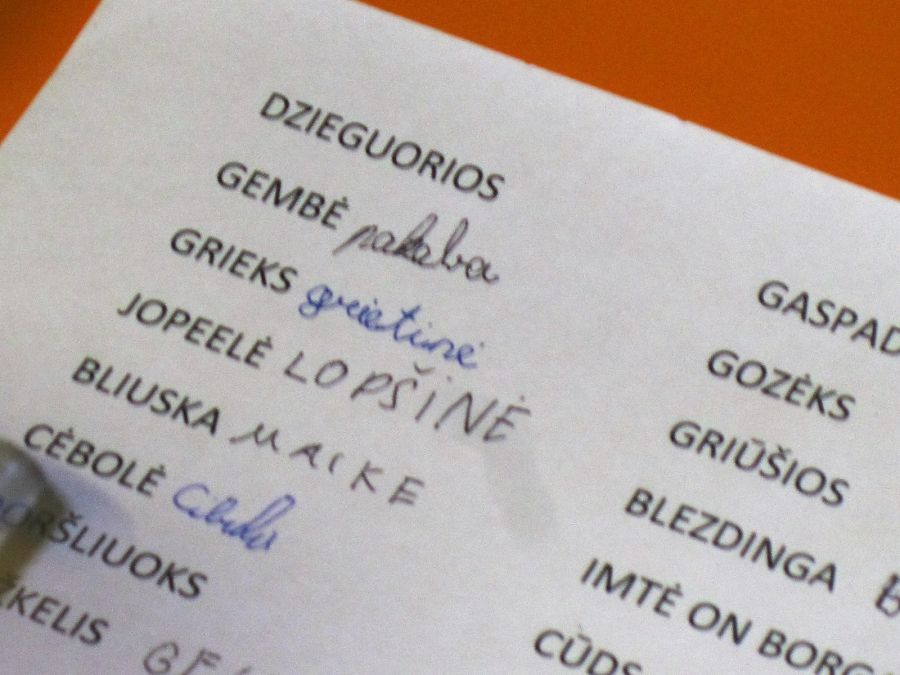 DZIEGUORIOS
GEMBĖ pakaba
GRIEKS grietinė
JOPEELĖ LOPŠINĖ
BLIUSKA MAIKE
CĖBOLĖ Cibulis
ORŠLIUOKS
ŽKELIS GE
GASPAD
GOZĖKS
GRIŪŠIOS
BLEZDINGA
IMTĖ ON BORG
CŪDS